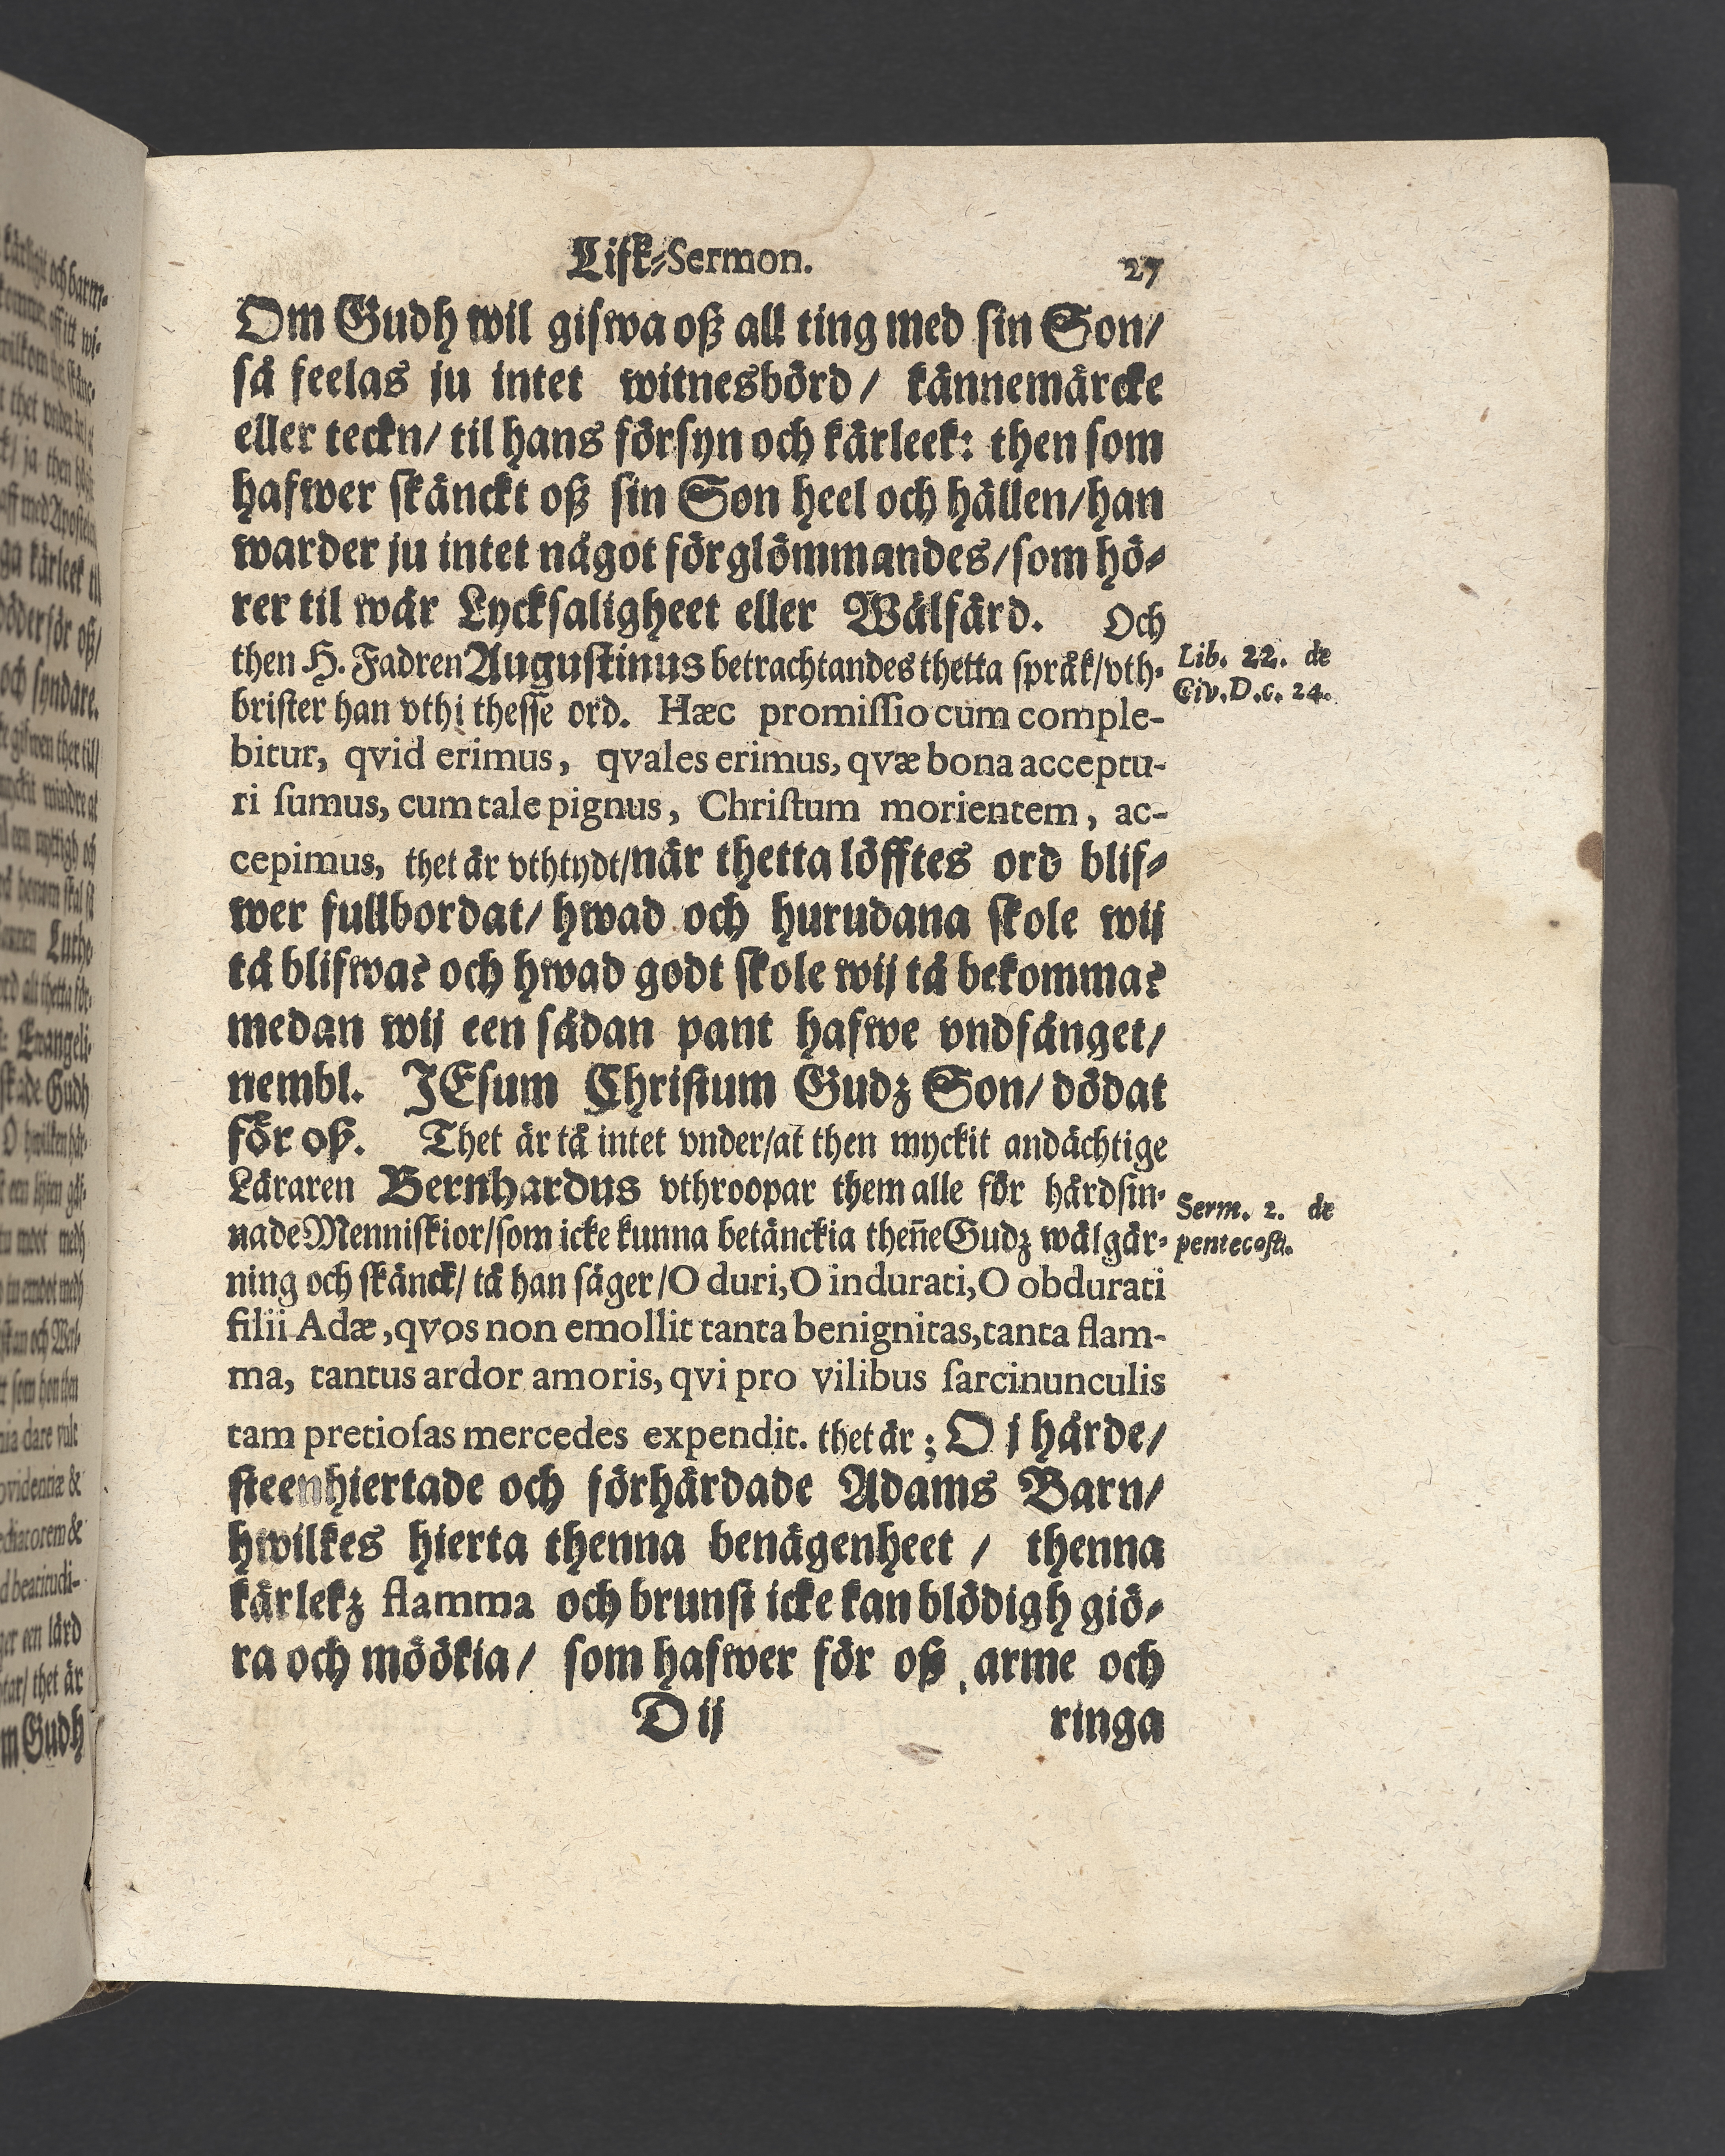 Lijk-Sermon. 27
Om Gudh wil gifwa oß all ting med sin Son/
så feelas ju intet witnesbörd/ kännemärcke
eller teckn/ til hans försyn och kärleek: then som
hafwer skänckt oß sin Son heel och hållen/ han
warder ju intet något förglömmandes/ som hö-
rer til wår Lycksaligheet eller Wälfärd. Och
then H. Fadren Augustinus betrachtandes thetta språk/ vth-
brister han vthi thesse ord. Hæc promissio cum comple-
bitur, qvid erimus, qvales erimus, qvæ bona acceptu-
ri sumus, cum tale pignus, Christum morientem, ac-
cepimus, thet är vthtydt/ när thetta löfftes ord blif-
wer fullbordat/ hwad och hurudana skole wij
tå blifwa? och hwad godt skole wij tå bekomma?
medan wij een sådan pant hafwe vndfånget/
nembl. JEsum Christum Gudz Son/ dödat
för oß. Thet är tå intet vnder/ at then myckit andächtige
Läraren Bernhardus vthroopar them alle för hårdsin-
nade Menniskior/ som icke kunna betänckia theñe Gudz wälgär-
ning och skänck/ tå han säger/ O duri, O indurati, O obdurati
filii Adæ, qvos non emollit tanta benignitas, tanta flam-
ma, tantus ardor amoris, qvi pro vilibus sarcinunculis
tam pretiosas mercedes expendit. thet är; O j hårde/
steenhiertade och förhärdade Adams Barn/
hwilkes hierta thenna benägenheet/ thenna
kärlekz flamma och brunst icke kan blödigh giö-
ra och möökia/ som hafwer för oß arme och
D ij ringa
Lib. 22. de
Civ. D. c. 24.
Serm. 2. de
pentecost.